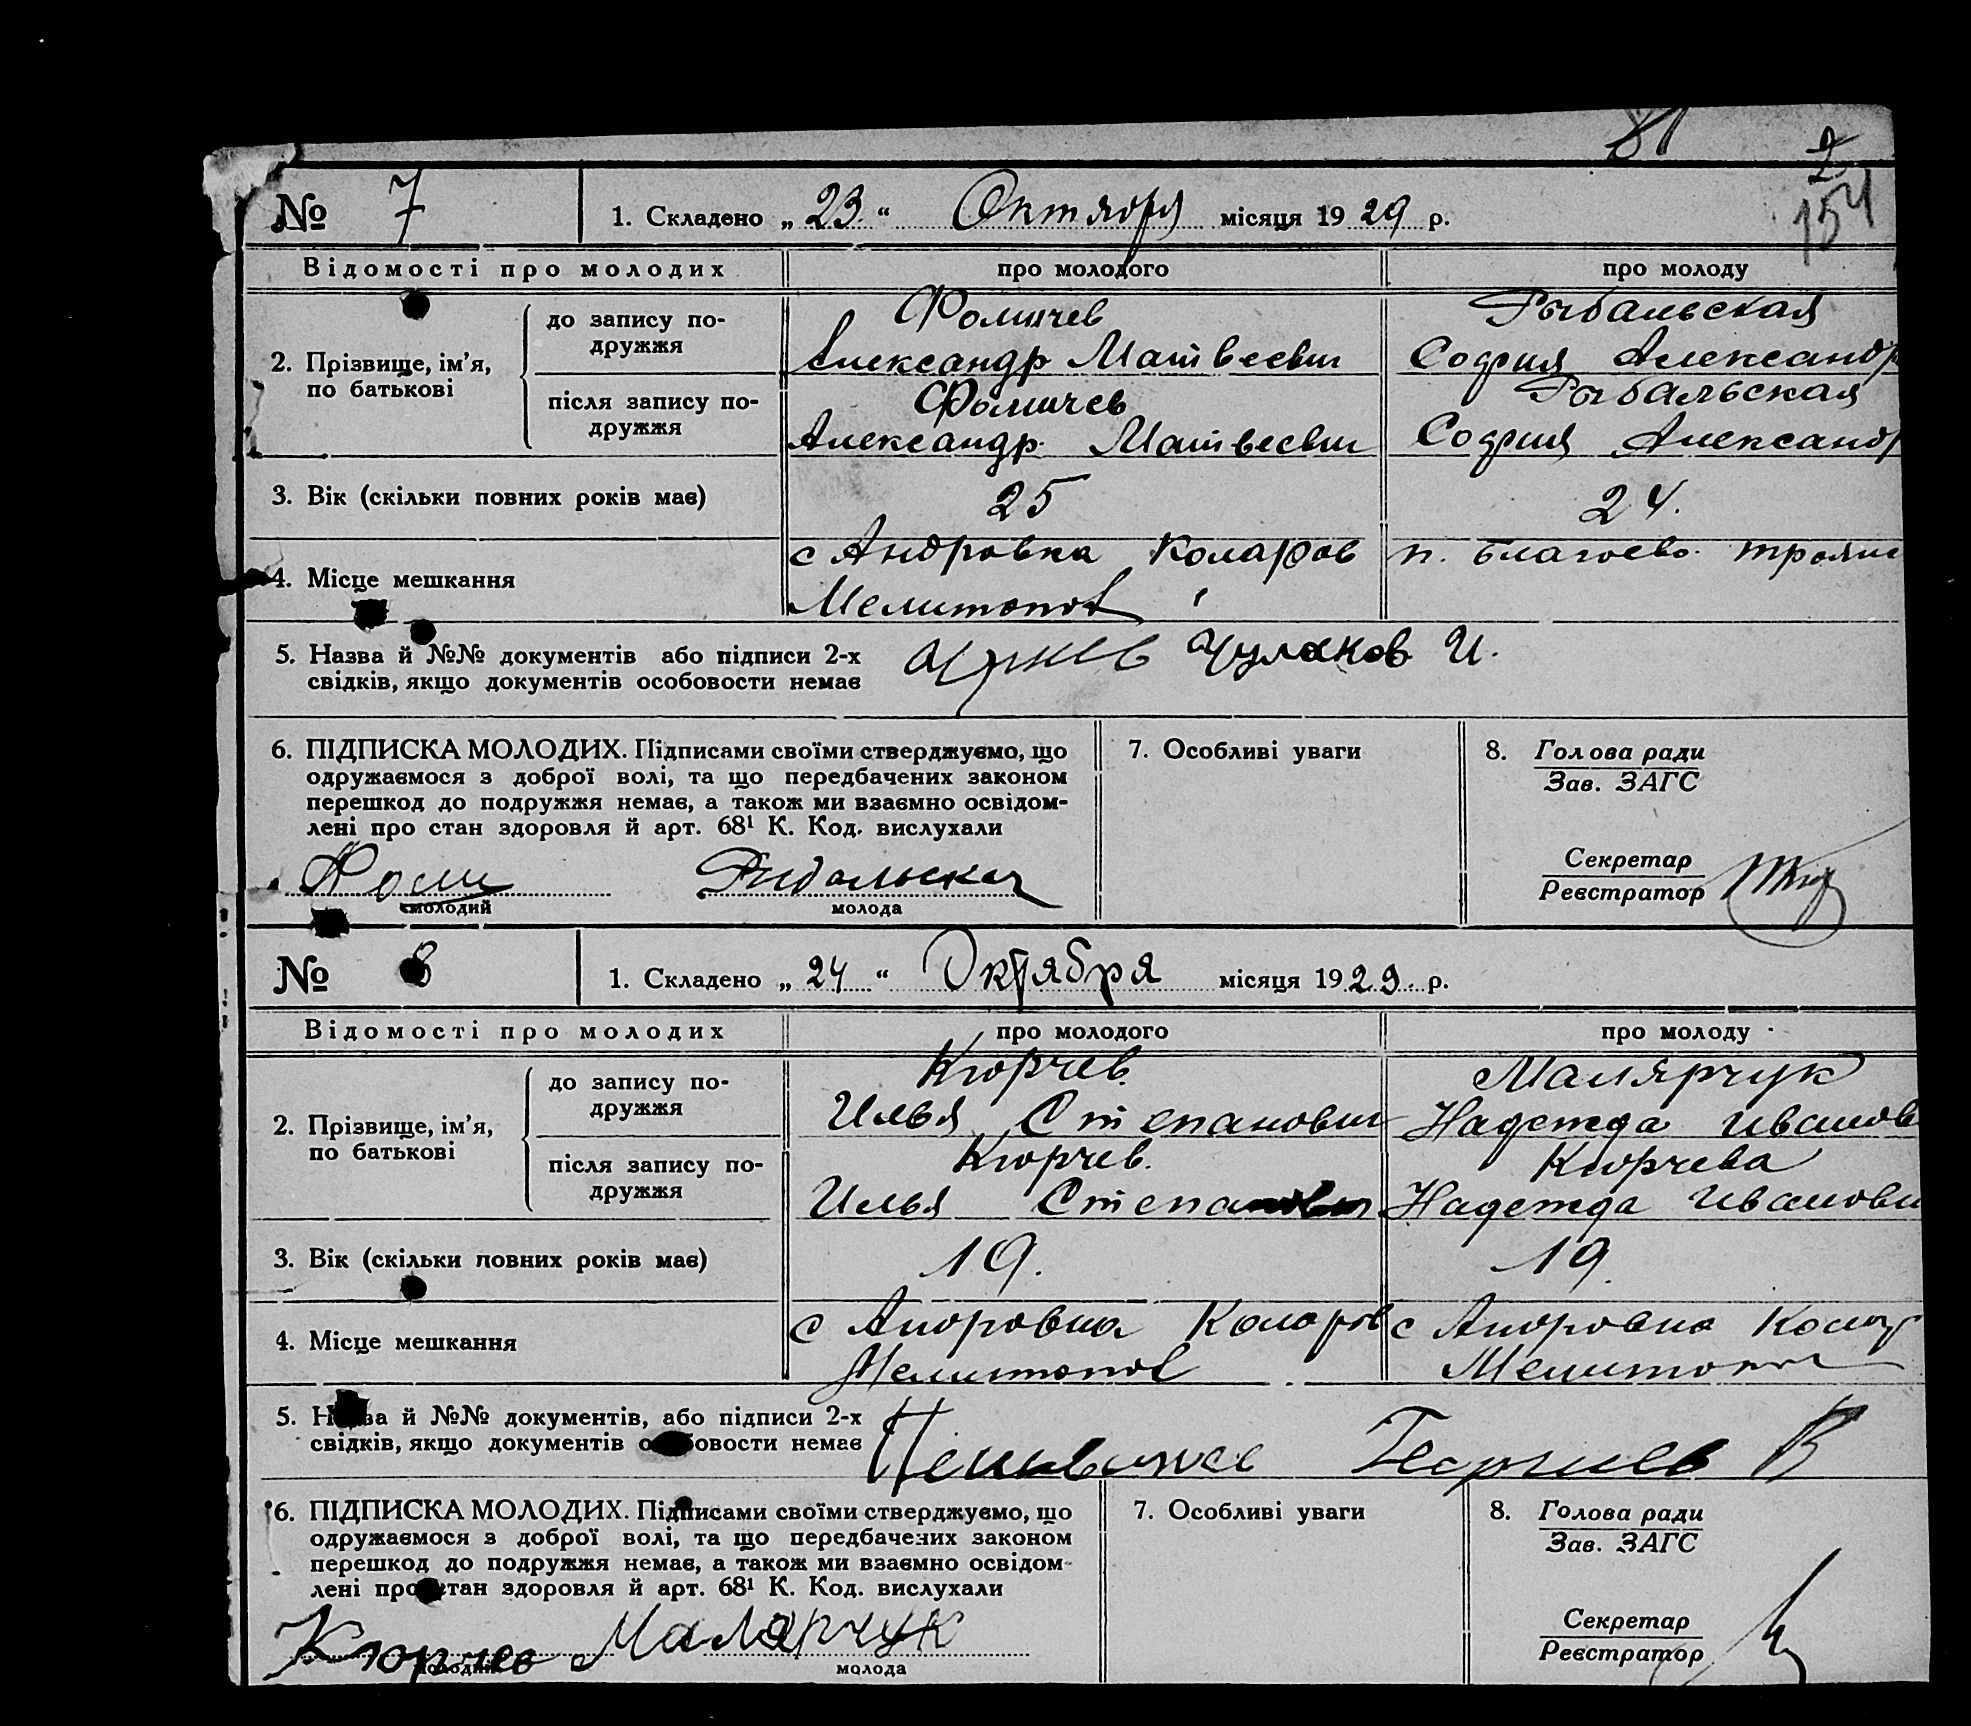 81
2
154
№ 7 1. Складено „ 23. “ Октября місяця 19 29 р.
Відомості про молодих про молодого про молоду
2. Прізвище, ім’я, по батькові
до запису по-
дружжя
Фомичев
Александр Матвеевич
Рыбальская
София Александр
після запису по-
дружжя
Фомичев
Александр Матвеевич
Рыбальская
София Александр
3. Вік (скільки повних років має) 25 24.
4. Місце мешкання
с Андровка Коларов
Мелитопол
п. Благоево
5. Назва й №№ документів або підписи 2-х
свідків, якщо документів особовости немає
Чулаков И.
6. ПІДПИСКА МОЛОДИХ. Підписами своїми стверджуємо, що
одружаємося з доброї волі, та що передбачених законом
перешкод до подружжя немає, а також ми взаємно освідом-
лені про стан здоровля й арт. 68¹ К. Код. вислухали
Фоми Рибальская
молодий молода
7. Особливі уваги
8. Голова ради
Зав. ЗАГС
Секретар
Реєстратор
№ 8 1. Складено „ 24 “ Октября місяця 19 29. р.
Відомості про молодих про молодого про молоду
2. Прізвище, ім’я,
по батькові
до запису по-
дружжя
Кюрчев.
Илья Степанович
Малярчук
Надежда Иванов
після запису по-
дружжя
Кюрчев.
Илья Степанович
Кюрчева
Надежда Ивановн
3. Вік (скільки повних років має) 19. 19.
4. Місце мешкання
с Андровка Коларов
Мелитопол
с Андровка Колар
Мелитопол
5. Назва й №№ документів, або підписи 2-х
свідків, якщо документів особовости немає
Георгиев В
6. ПІДПИСКА МОЛОДИХ. Підписами своїми стверджуємо, що
одружаємося з доброї волі, та що передбачених законом
перешкод до подружжя немає, а також ми взаємно освідом-
лені про стан здоровля й арт. 68¹ К. Код. вислухали
Кюрчев Малярчук
молодий молода
7. Особливі уваги
8. Голова ради
Зав. ЗАГС
Секретар
Реєстратор